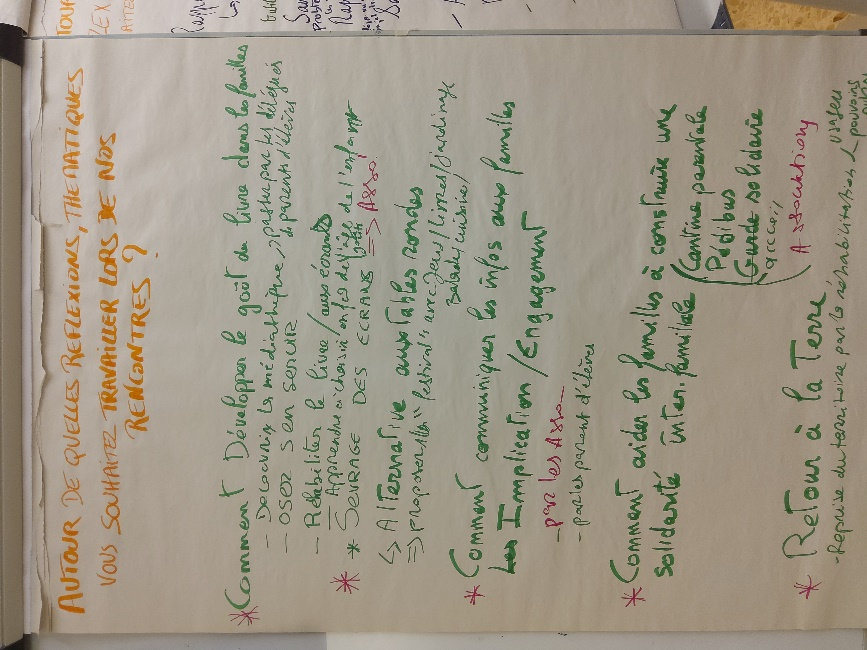 AUTOUR DE QUELLES REFLEXIONS, THEMATIQUES
VOUS SOUHAITEZ TRAVAILLER LORS DE NOS
RENCONTRES ?
* Comment Développer le goût du livre dans les familles
- Découvrir la médiathèque, par les délégués
de parents d'élèves
- OSER S'en SERVIR
- Réhabiliter le livre / aux écrans
- Apprendre à choisir en fct de l'âge de l'enfant
* SEVRAGE DES ECRANS => ASSO
↳ Alternative aux tables rondes
=> proposer des "festivals" avec Jeux / livres / Jardinage
Balade / cuisine /
* Comment communiquer les infos aux familles
Les Implication / Engagement
- par les Asso
- par les parents d'élèves
* Comment aider les familles à construire une
solidarité inter. familiale ( Cantine parentale
Pédibus
Garde solidaire
Associations
* Retour à la Terre
- Reprise du territoire par la réhabilitation
pouvoirs